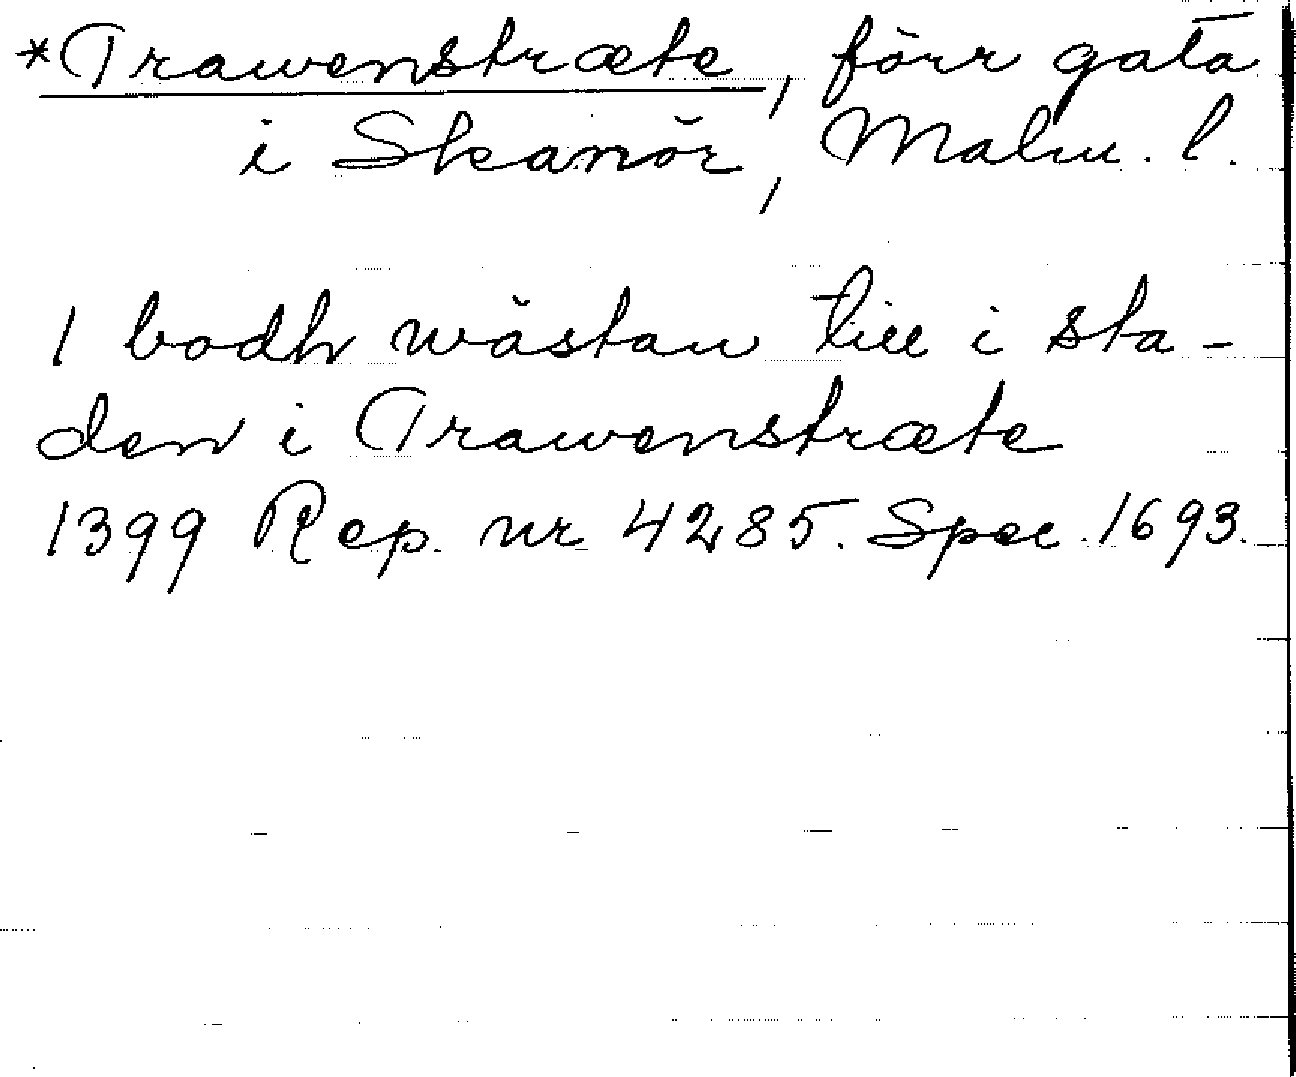 *Trawenstræte, förr gata
i Skanör, Malm. l.
1 bodh wästan till i sta-
den i Trawenstræte
1399 Rep. nr 4285. Spec. 1693.